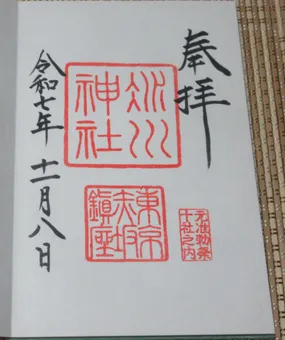 奉拝
氷川
神社
元准勅祭
十社之内
東京
赤坂
鎮座
令和七年 十一月八日